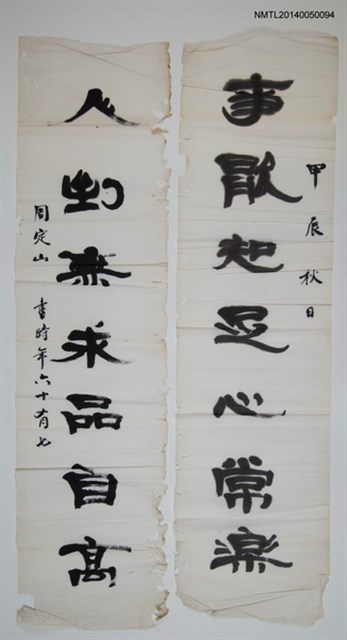 NMTL20140050094
甲辰秋日
事能知足心常樂
人到無求品自高
周定山 書時年六十有七